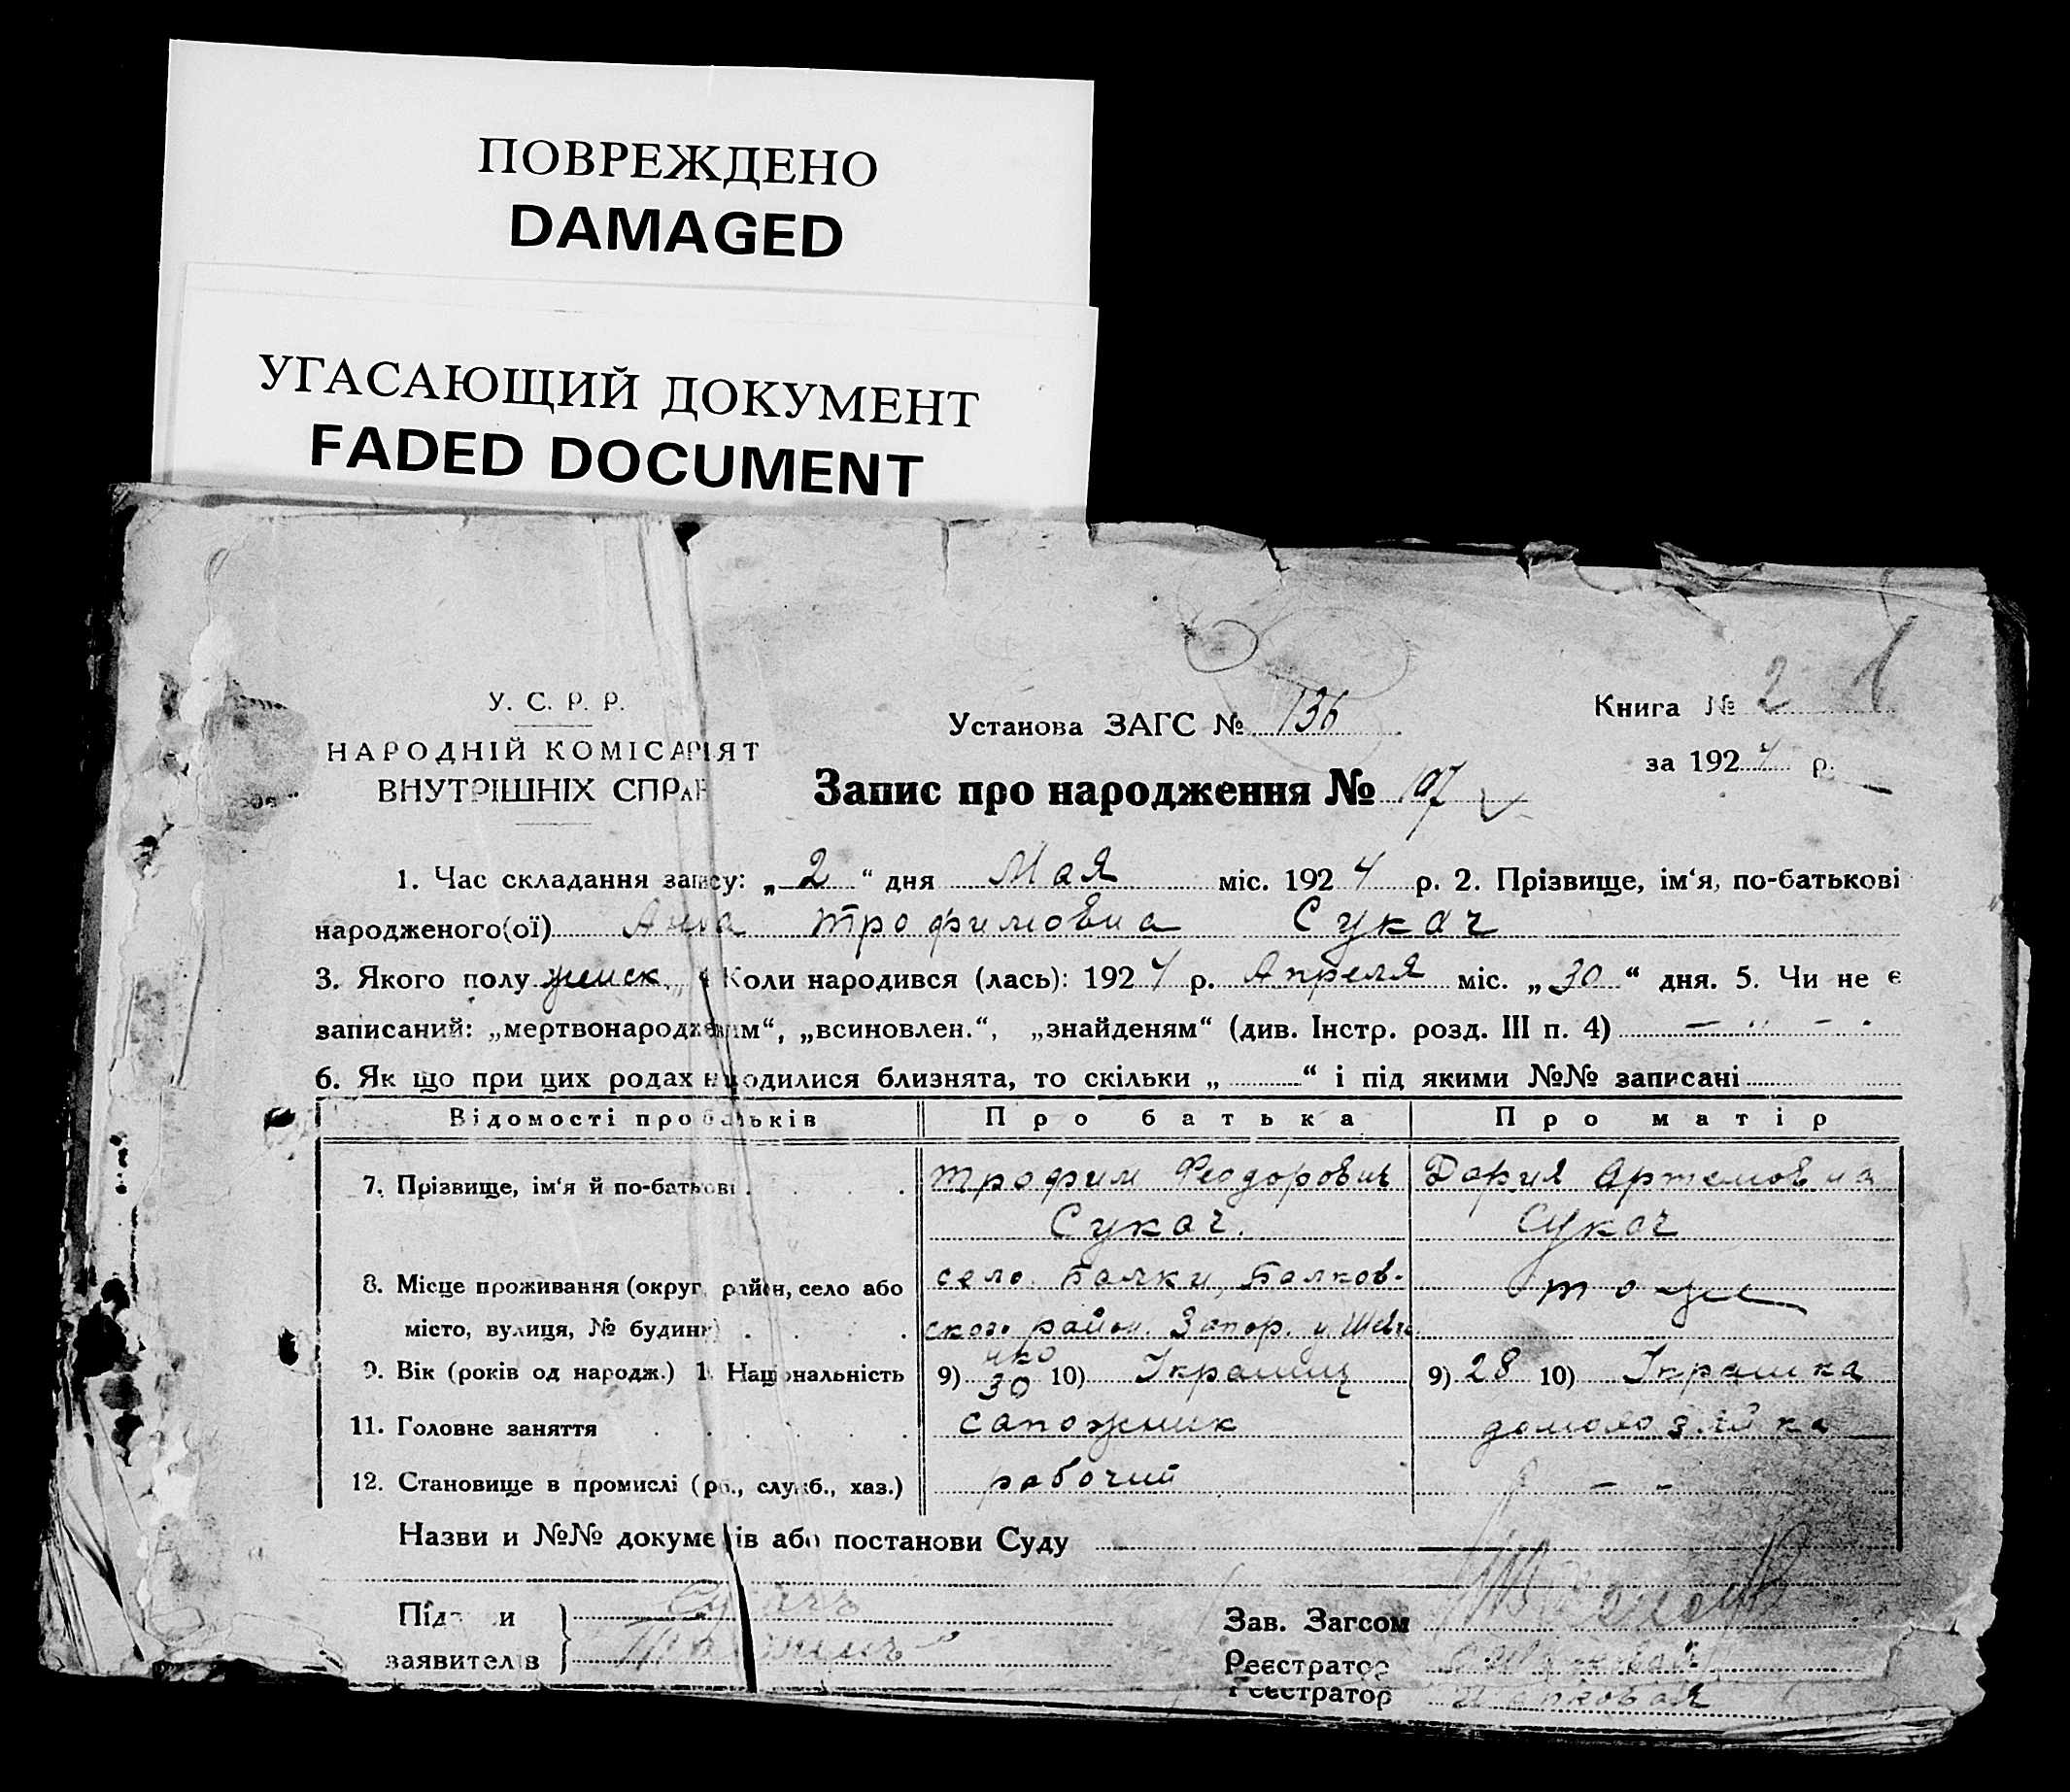 ПОВРЕЖДЕНО
DAMAGED
УГАСАЮЩИЙ ДОКУМЕНТ
FADED DOCUMENT
У. С. Р. Р.
НАРОДНІЙ КОМІСАРІЯТ
ВНУТРІШНІХ СПРАВ
Установа ЗАГС № 136
Книга № 2
за 1924 р.
Запис про народження № 197
1. Час складання запису: „ 2 “ дня Мая міс. 1924 р. 2. Прізвище, ім‘я, по-батькові
народженого(ої) Анна Трофимовна Сукач
3. Якого полу женск. 4 Коли народився (лась): 1924 р. Апреля міс. „ 30 “ дня. 5. Чи не є
записаний: „мертвонародженим“, „всиновлен.“, „знайденям“ (див. Інстр. розд. III п. 4) — „ — .
6. Як що при цих родах народилися близнята, то скільки „ “ і під якими №№ записані
Відомості про батьків Про батька Про матір
7. Прізвище, ім‘я й по-батькові Трофим Феодорович Дария Артемовна
Сукач. Сукач
8. Місце проживання (округ, район, село або село Балки, Балков- тоже
місто, вулиця, № будинк) ского район. Запор. у. Шевче
нко
9. Вік (років од народж.) 10. Національність 9) 30 10) Украинц 9) 28 10) Украинка
11. Головне заняття сапожник домохозяйка
12. Становище в промислі (роб., служб., хаз.) рабочий — -
Назви и №№ документів або постанови Суду
Підписи Сукачъ
заявителів Трофимъ
Зав. Загсом
Реєстратор
Реєстратор